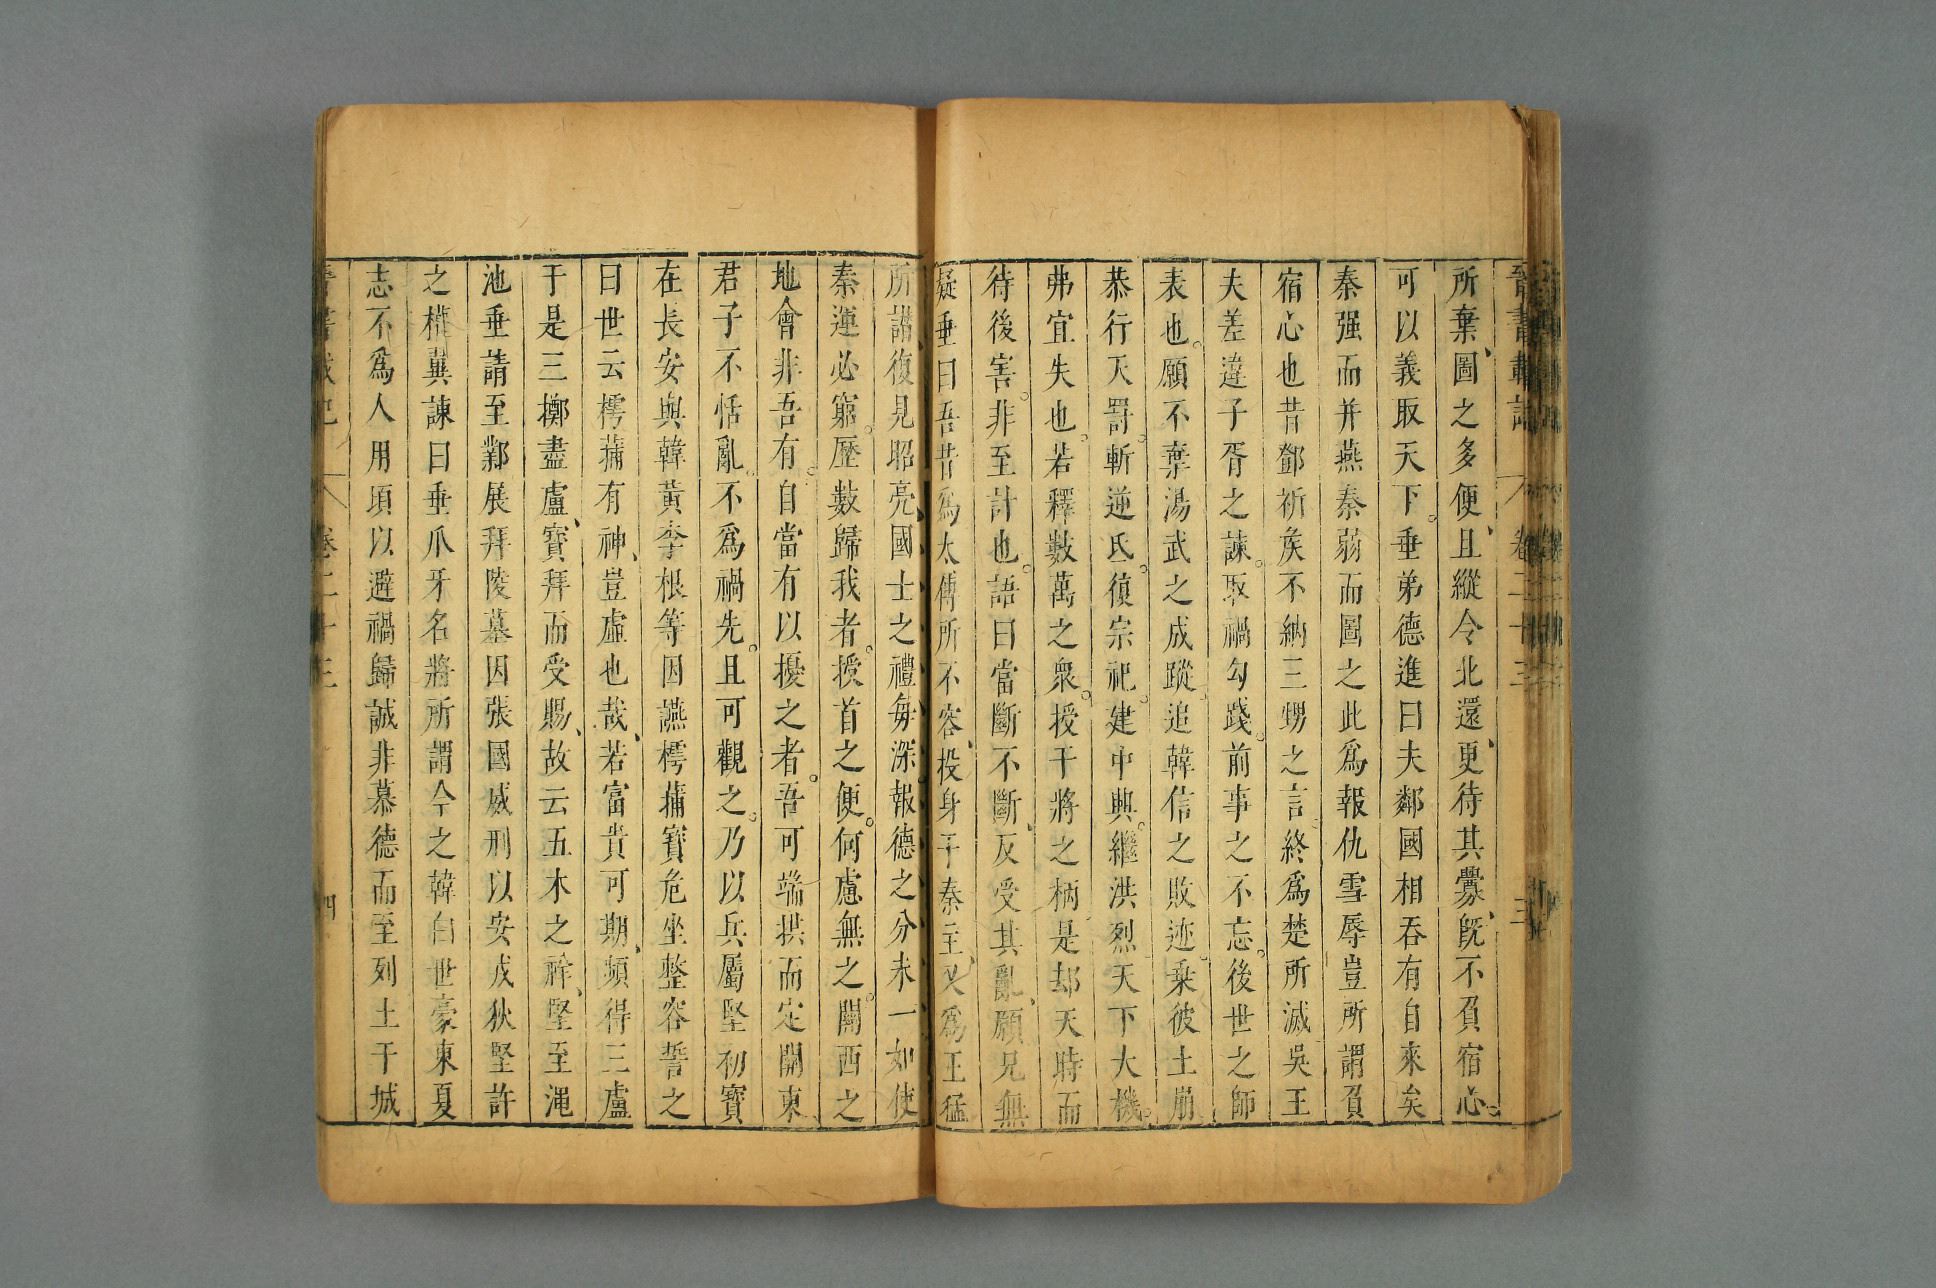 晉書載記 卷二十三 三
所棄圖之多便且縱令北還更待其釁旣不負宿心
可以義取天下垂弟德進曰夫鄰國相吞有自來矣
秦强而并燕秦弱而圖之此爲報仇雪辱豈所謂負
宿心也昔鄧祈矦不納三甥之言終爲楚所滅吳王
夫差違子胥之諫取禍勾踐前事之不忘後世之師
表也願不棄湯武之成蹤追韓信之敗迹乘彼土崩
恭行天罰斬逆氐復宗祀建中興繼洪烈天下大機
弗宜失也若釋數萬之衆授干將之柄是却天時而
待後害非至計也語曰當斷不斷反受其亂願兄無
疑垂曰吾昔爲太傅所不容投身于秦主又爲王猛
所譖復見昭亮國士之禮每深報德之分未一如使
秦運必窮歷數歸我者授首之便何慮無之關西之
地會非吾有自當有以擾之者吾可端拱而定關東
君子不恬亂不爲禍先且可觀之乃以兵屬堅初寶
在長安與韓黃李根等因讌樗蒱寶危坐整容誓之
曰世云樗蒱有神豈虛也哉若富貴可期頻得三盧
于是三擲盡盧寶拜而受賜故云五木之祥堅至澠
池垂請至鄴展拜陵墓因張國威刑以安戎狄堅許
之權翼諫曰垂爪牙名將所謂今之韓白世豪東夏
志不爲人用頃以避禍歸誠非慕德而至列土干城
晉書載記 卷二十三 四